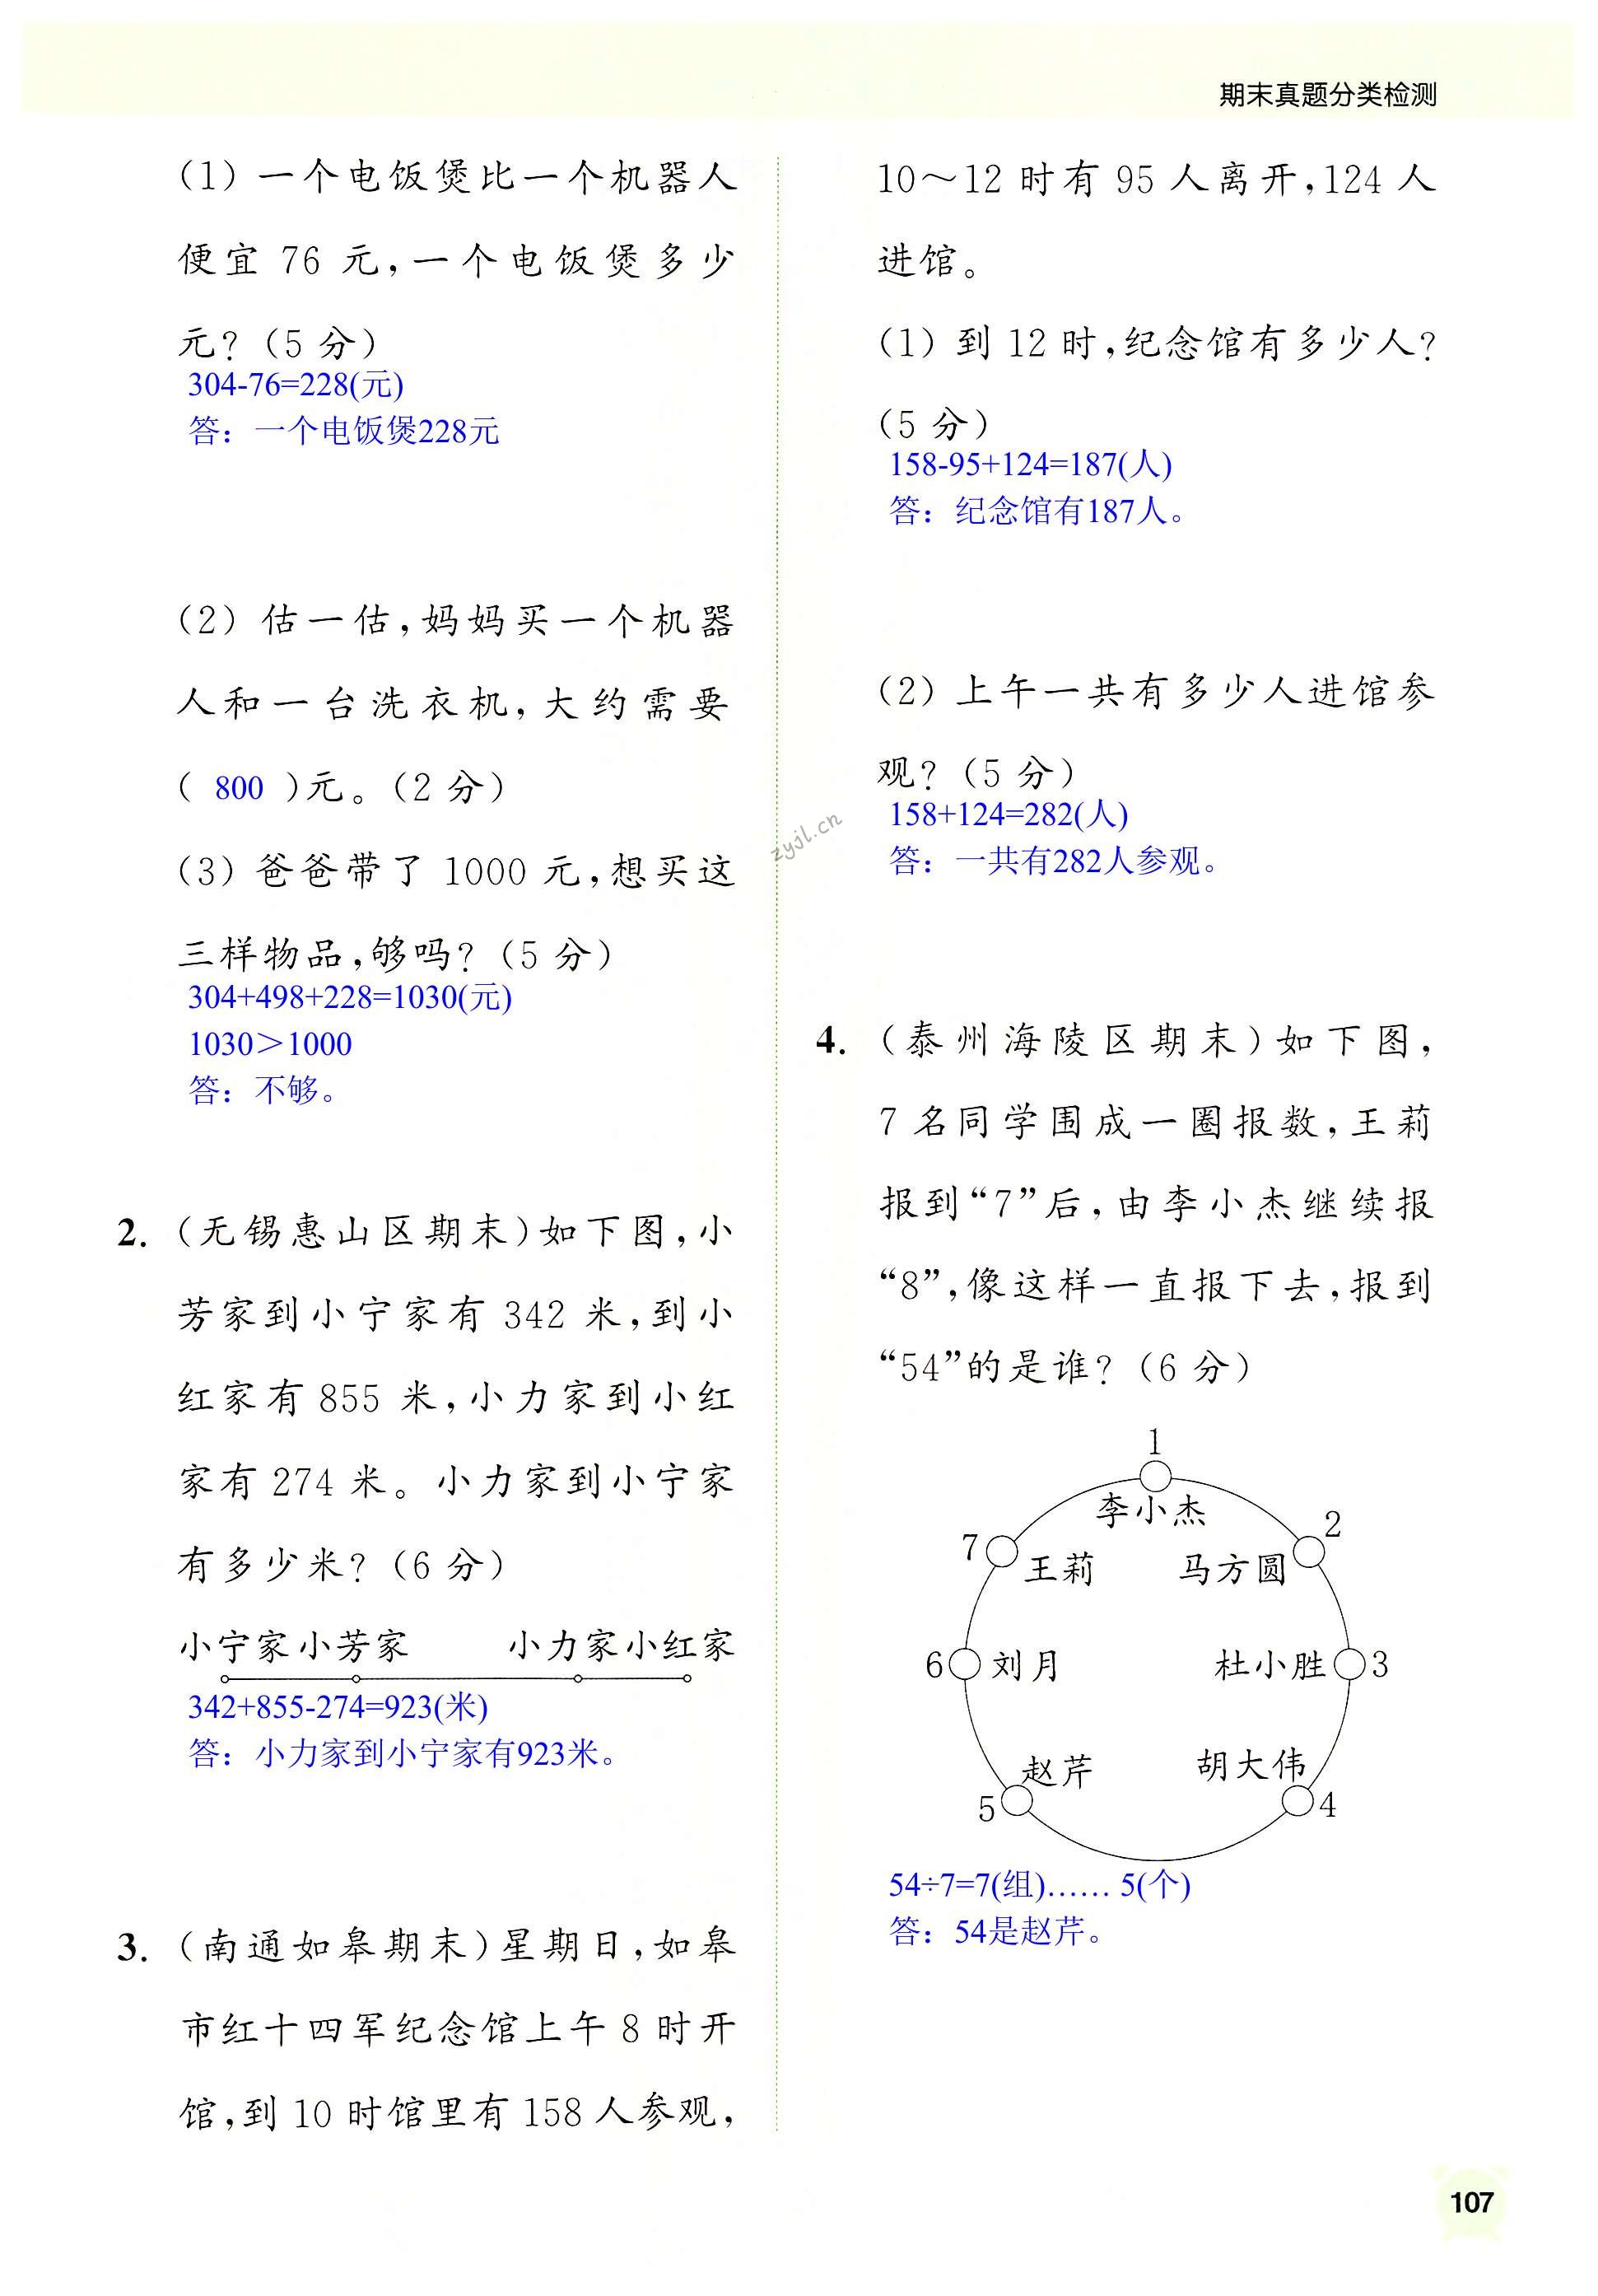 期末真题分类检测
(1) 一个电饭煲比一个机器人
便宜 76 元，一个电饭煲多少
元？(5 分)
304-76=228(元)
答：一个电饭煲228元
(2) 估一估，妈妈买一个机器
人和一台洗衣机，大约需要
( 800 )元。(2 分)
(3) 爸爸带了 1000 元，想买这
三样物品，够吗？(5 分)
304+498+228=1030(元)
1030＞1000
答：不够。
2. (无锡惠山区期末)如下图，小
芳家到小宁家有 342 米，到小
红家有 855 米，小力家到小红
家有 274 米。小力家到小宁家
有多少米？(6 分)
小宁家 小芳家 小力家 小红家
342+855-274=923(米)
答：小力家到小宁家有923米。
3. (南通如皋期末)星期日，如皋
市红十四军纪念馆上午 8 时开
馆，到 10 时馆里有 158 人参观，
10～12 时有 95 人离开，124 人
进馆。
(1) 到 12 时，纪念馆有多少人？
(5 分)
158-95+124=187(人)
答：纪念馆有187人。
(2) 上午一共有多少人进馆参
观？(5 分)
158+124=282(人)
答：一共有282人参观。
zyjl.cn
4. (泰州海陵区期末)如下图，
7 名同学围成一圈报数，王莉
报到“7”后，由李小杰继续报
“8”，像这样一直报下去，报到
“54”的是谁？(6 分)
1
李小杰
7 王莉 马方圆 2
6 刘月 杜小胜 3
赵芹 胡大伟
5 4
54÷7=7(组)…… 5(个)
答：54是赵芹。
107